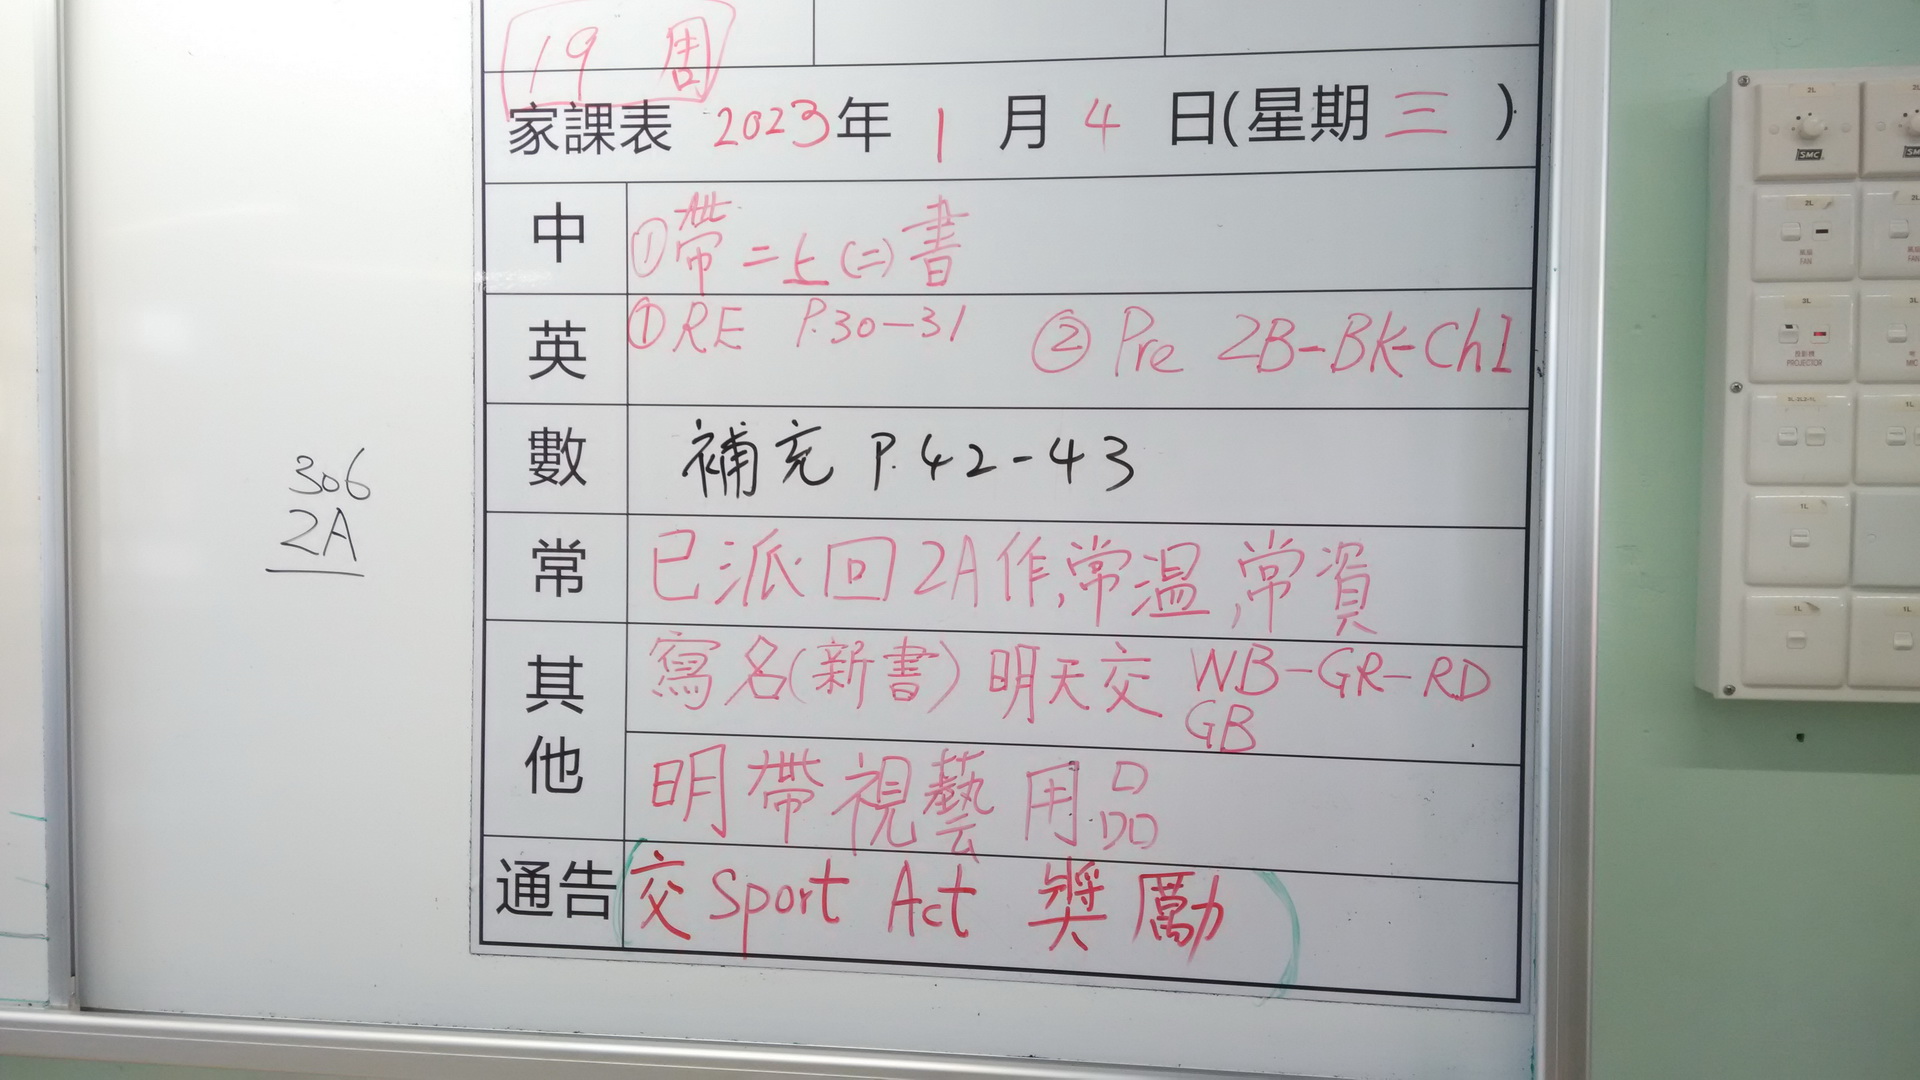 19 周
家課表 2023年 1 月 4 日(星期 三 )
中 ①帶二上(二)書
英 ①RE P.30-31 ②Pre 2B-BK-Ch1
數 補充 P.42-43
306
2A
常 已派回2A作,常溫,常資
其他 寫名(新書) 明天交 WB-GR-RD
GB
明帶視藝用品
通告 交 Sport Act 獎勵
2L
SMC
2L
FAN
3L
投影機
PROJECTOR
1L
1L
1L
1L